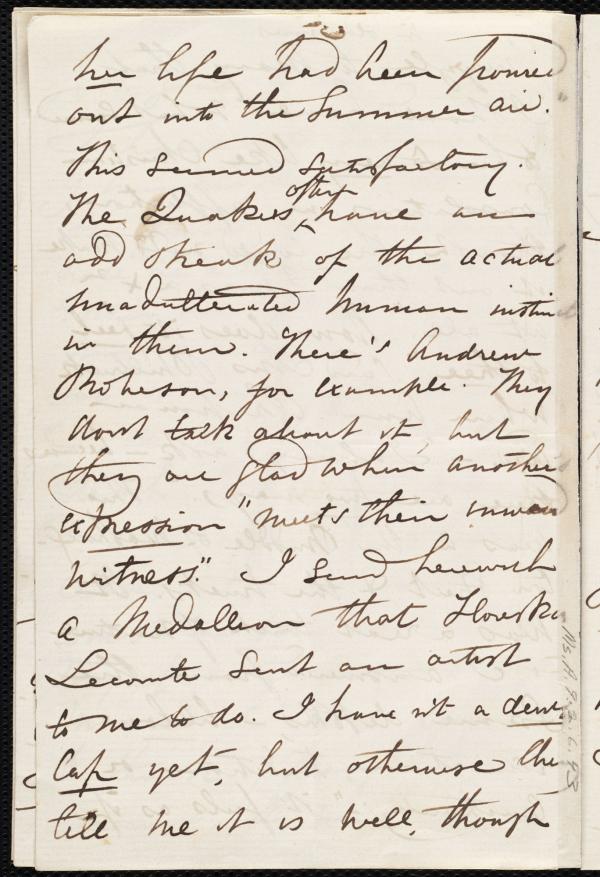 her life had been poured
out into the Summer air.
This seemed satisfactory.
The Quakers often have an
odd streak of the actual
unadulterated human instinct
in them. There's Andrew
Robeson, for example. They
dont talk about it, but
they are glad when another
expression "meets their inward
witness". I send herewith
a Medallion that
Lecomte sent an artist
to me to do. I have n't a
Cap yet, but otherwise they
tell me it is well, though
Ms.A.9.2.6.93